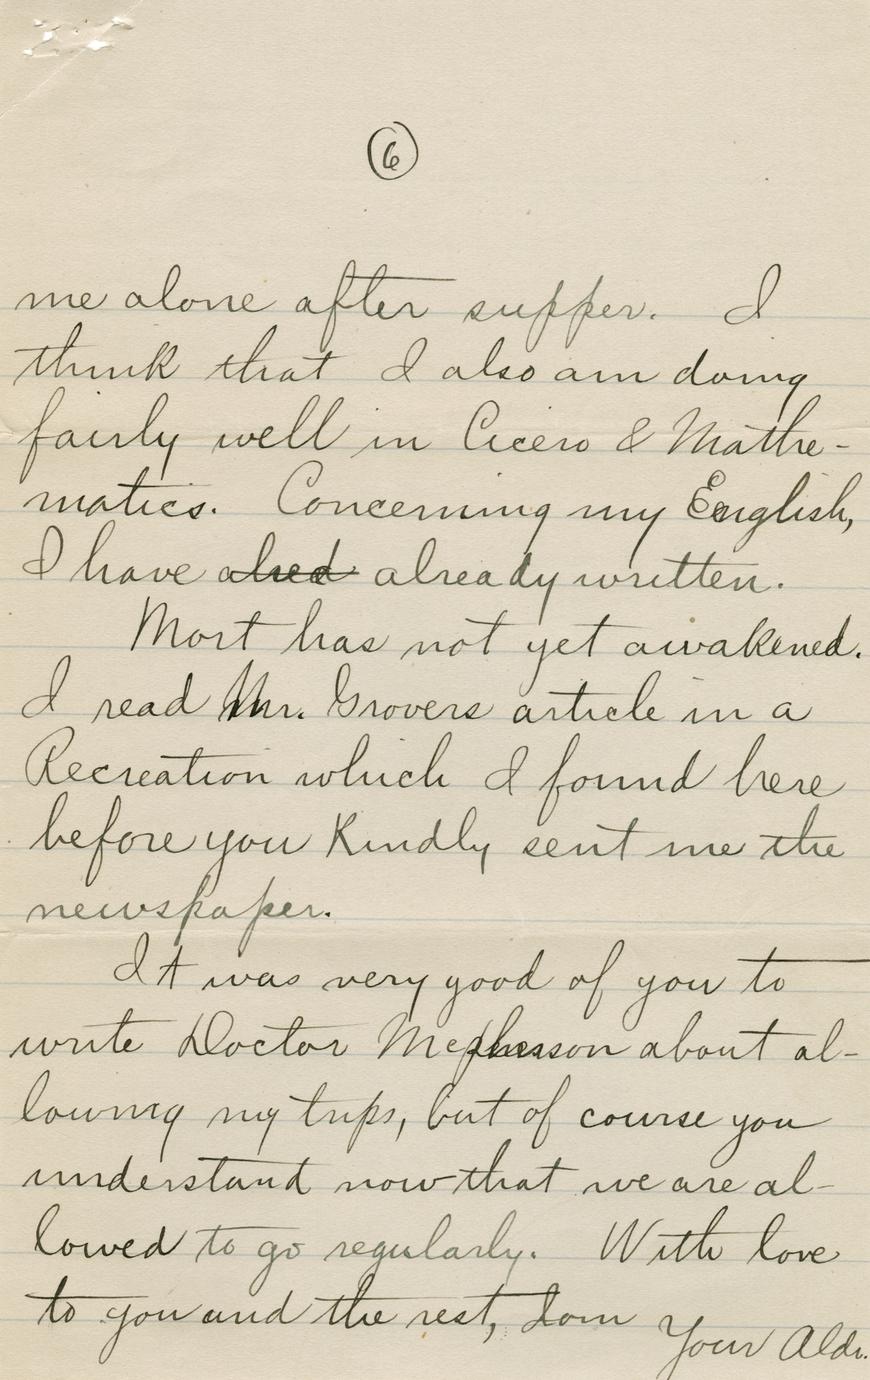 6
me alone after supper. I
think that I also am doing
fairly well in Cicero & Mathe-
matics. Concerning my English,
I have alred already written.
Mort has not yet awakened.
I read Mr. Grovers article in a
Recreation which I found here
before you kindly sent me the
newspaper.
It was very good of you to
write Doctor Mcpherson about al-
lowing my trips, but of course you
understand now that we are al-
lowed to go regularly. With love
to you and the rest, I am
Your Aldo.